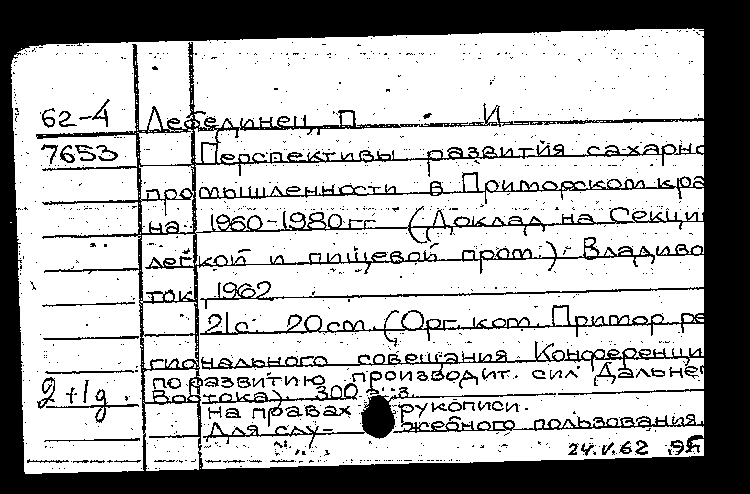 62-4 Лебединец, П. И
7653 Перспективы развития сахарно
промышленности в Приморском кра
на 1960-1980 гг (Доклад на Секции
легкой и пищевой пром.). Владиво
ток, 1962
21с. 20см. (Орг. ком. Примор ре
гионального совещания Конференци
по развитию производит. сил Дальне
2+1д. Востока). 300 экз.
на правах рукописи.
Для слу- жебного пользования.
24.V.62